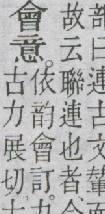 部曰連古文輦
故云聯連也者今
會意。依韵會訂。
古力展切十